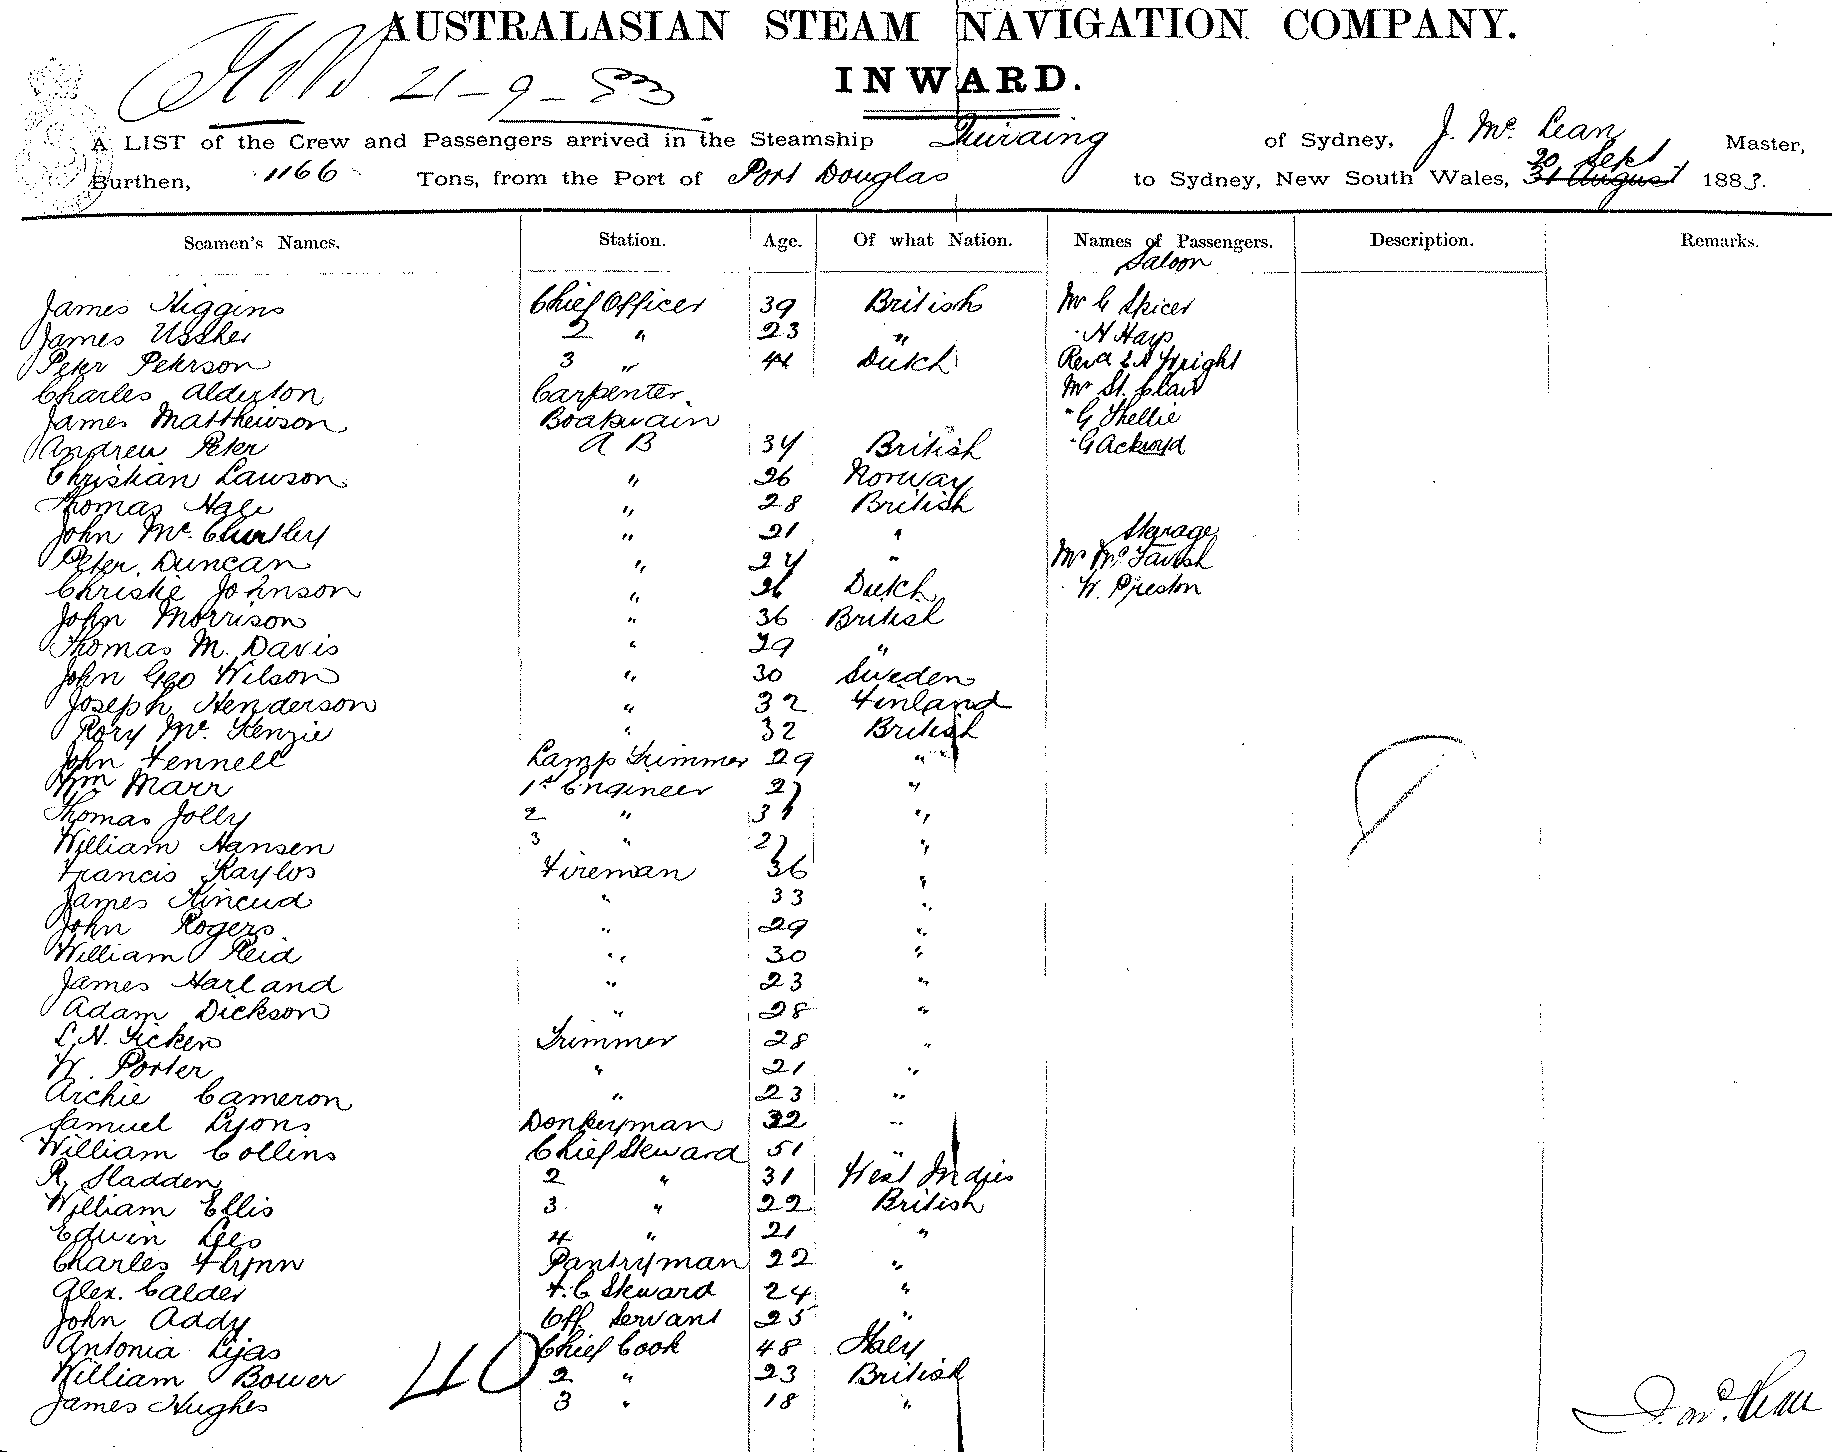 AUSTRALASIAN STEAM NAVIGATION COMPANY.
21-9-83
INWARD.
A LIST of the Crew and Passengers arrived in the Steamship Quiraing of Sydney, J. Mc. Lean Master,
Burthen, 1166 Tons, from the Port of Port Douglas to Sydney, New South Wales, 20 Sept 31 August 1883.
Seamen's Names. Station. Age. Of what Nation. Names of Passengers. Description. Remarks.
Saloon
James Higgins Chief Officer 39 British Mr C Spicer
James Ussher 2 " 23 " " H Hays
Peter Peterson 3 " 44 Dutch Revd E A Wright
Charles Alderton Carpenter Mr St. Clair
James Matthewson Boatswain " G Shellie
Andrew Peter A B 34 British " G Ackroyd
Christian Lawson " 26 Norway
Thomas Hale " 28 British
John Mc. " 21 " Sterage
Peter Duncan " 24 " Mr McTavish
Christie Johnson " 26 Dutch " W. Preston
John Morrison " 36 British
Thomas M. Davis " 29 "
John Geo Wilson " 30 Sweden
Joseph Henderson " 32 Finland
Rory Mc. Kenzie " 32 British
John Fennell Lamp Trimmer 29 "
Wm Marr 1st Engineer 27 "
Thomas Jolly 2 " 31 "
William Hansen 3 " 27 "
Francis Kaylos Fireman 36 "
James Kincud " 33 "
John Rogers " 29 "
William Reid " 30 "
James Harland " 23 "
Adam Dickson " 28 "
L. N. Tickers Trimmer 28 "
W. Porter " 21 "
Archie Cameron " 23 "
Samuel Lyons Donkeyman 32 "
William Collins Chief Steward 51 "
R. Sladden 2 " 31 West Indies
William Ellis 3 " 22 British
Edwin Lees 4 " 21 "
Charles Flynn Pantryman 22 "
Alex. Calder F. C Steward 24 "
John Addy Off Servant 25 "
Antonia Lijas Chief Cook 48 Italy
William Bower 2 " 23 British
James Hughes 3 " 18 "
40
J. Mc. Lean